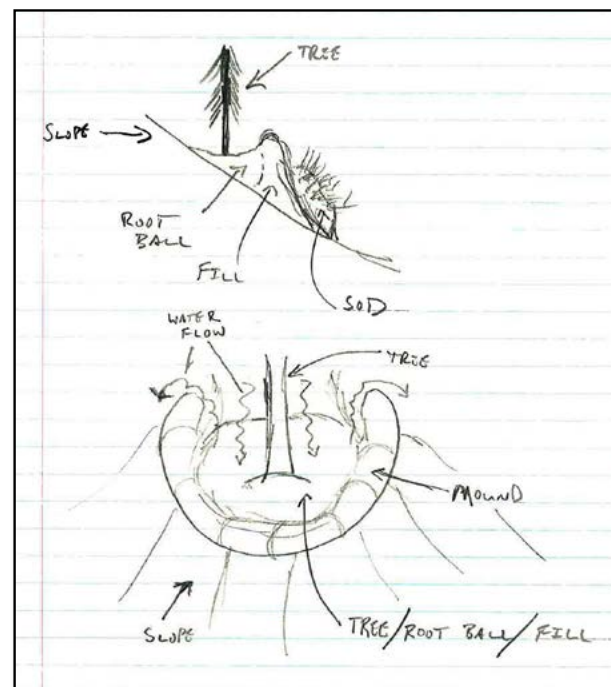 TREE
SLOPE
ROOT
BALL
FILL
SOD
WATER
FLOW
TREE
MOUND
SLOPE
TREE/ROOT BALL/FILL